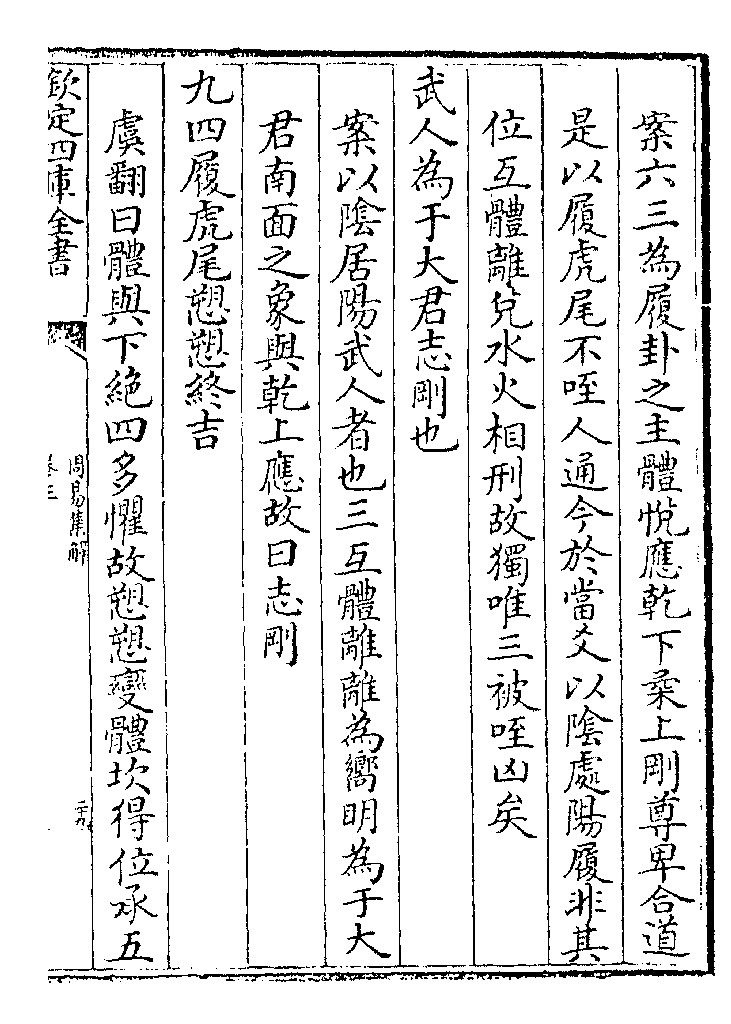 案六三為履卦之主體悅應乾下柔上剛尊卑合道
是以履虎尾不咥人通今於當爻以陰處陽履非其
位互體離兌水火相刑故獨唯三被咥凶矣
武人為于大君志剛也
案以陰居陽武人者也三互體離離為嚮明為于大
君南面之象與乾上應故曰志剛
九四履虎尾愬愬終吉
虞翻曰體與下絶四多懼故愬愬變體坎得位承五
欽定四庫全書
周易集解
卷三